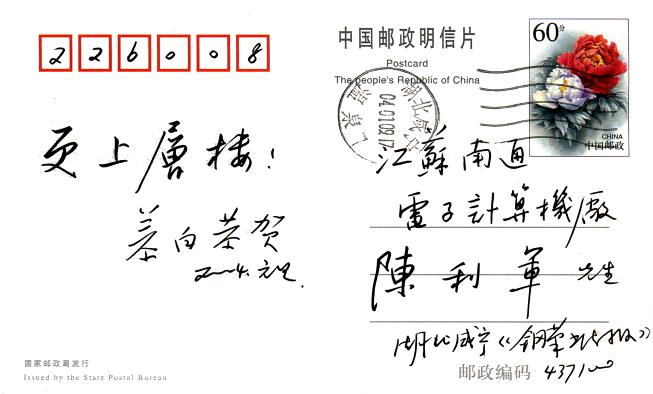 226008
中国邮政明信片
Postcard
The people's Republic of China
60分
CHINA
中国邮政
湖北咸宁
温泉
04.01.09.17
更上層楼!
恭贺
2004.元旦.
江蘇南通
電子計算機廠
陳利軍 先生
湖北咸宁《钢笔书法报》
邮政编码 437100
国家邮政局发行
Issued by the State Postal Bureau